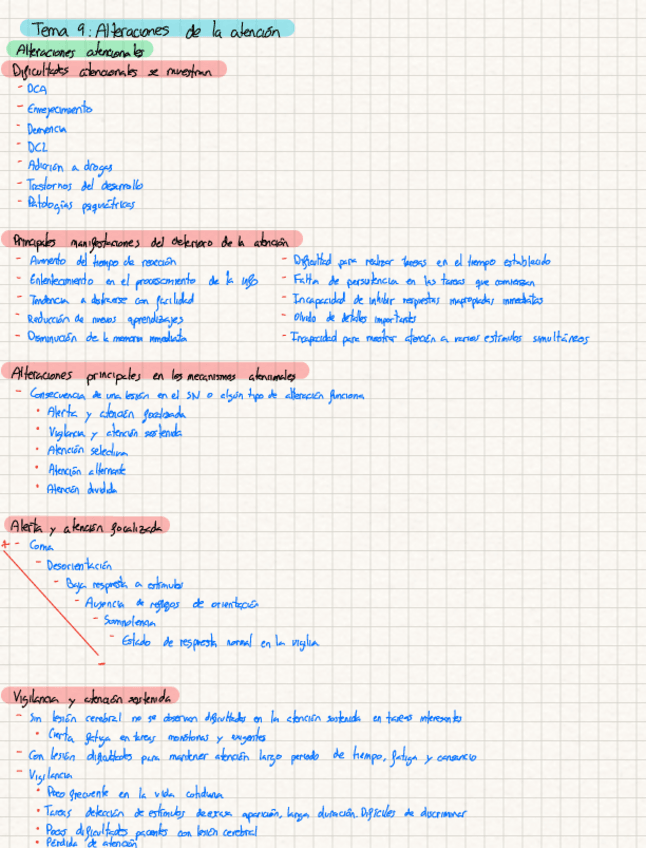 Tema 9: Alteraciones de la atención
Alteraciones atencionales
Dificultades atencionales se muestran
- DCA
- Envejecimiento
- Demencia
- DCL
- Adicción a drogas
- Trastornos del desarrollo
- Patologías psiquiátricas
Principales manifestaciones del deterioro de la atención
- Aumento del tiempo de reacción
- Enlentecimiento en el procesamiento de la info
- Tendencia a distraerse con facilidad
- Reducción de nuevos aprendizajes
- Disminución de la memoria inmediata
- Dificultad para realizar tareas en el tiempo establecido
- Falta de persistencia en las tareas que comienzan
- Incapacidad de inhibir respuestas inapropiadas inmediatas
- Olvido de detalles importantes
- Incapacidad para mostrar atención a varios estímulos simultáneos
Alteraciones principales en los mecanismos atencionales
- Consecuencia de una lesión en el SN o algún tipo de alteración funciona
• Alerta y atención focalizada
• Vigilancia y atención sostenida
• Atención selectiva
• Atención alternante
• Atención dividida
Alerta y atención focalizada
+ - Coma
- Desorientación
- Baja respuesta a estímulos
- Ausencia de reflejos de orientación
- Somnolencia
- Estado de respuesta normal en la vigilia
-
Vigilancia y atención sostenida
- Sin lesión cerebral no se observan dificultades en la atención sostenida en tareas interesantes
• Cierta fatiga en tareas monótonas y exigentes
- Con lesión dificultades para mantener atención largo periodo de tiempo, fatiga y cansancio
- Vigilancia
• Poco frecuente en la vida cotidiana
• Tareas detección de estímulos de escasa aparición, larga duración. Difíciles de discriminar
• Pocas dificultades pacientes con lesión cerebral
• Pérdida de atención